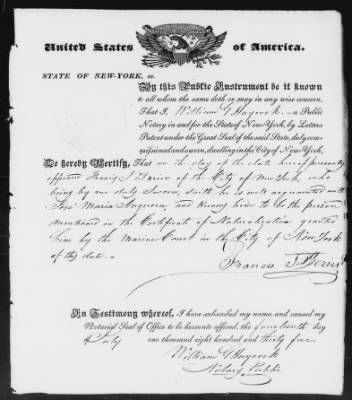 United States of America.
STATE OF NEW-YORK, ss.
By this Public Instrument be it known
to all whom the same doth or may in any wise concern,
That I, William V. Haycock a Public
Notary in and for the State of New York, by Letters
Patent under the Great Seal of the said State, duly com-
missioned and sworn, dwelling in the City of New York,
Do hereby Certify, That on the day of the date hereof personally
appeared of the City of New York who
being by me duly Sworn, saith he is well acquainted with
José Maria Anguera and knows him to be the person
mentioned in the Certificate of Naturalization granted
him by the Marine Court in the City of New York
of this date
Francis
In Testimony whereof, I have subscribed my name, and caused my
Notarial Seal of Office to be hereunto affixed, the fourteenth day
of July one thousand eight hundred and thirty five
William V Haycock
Notary Public